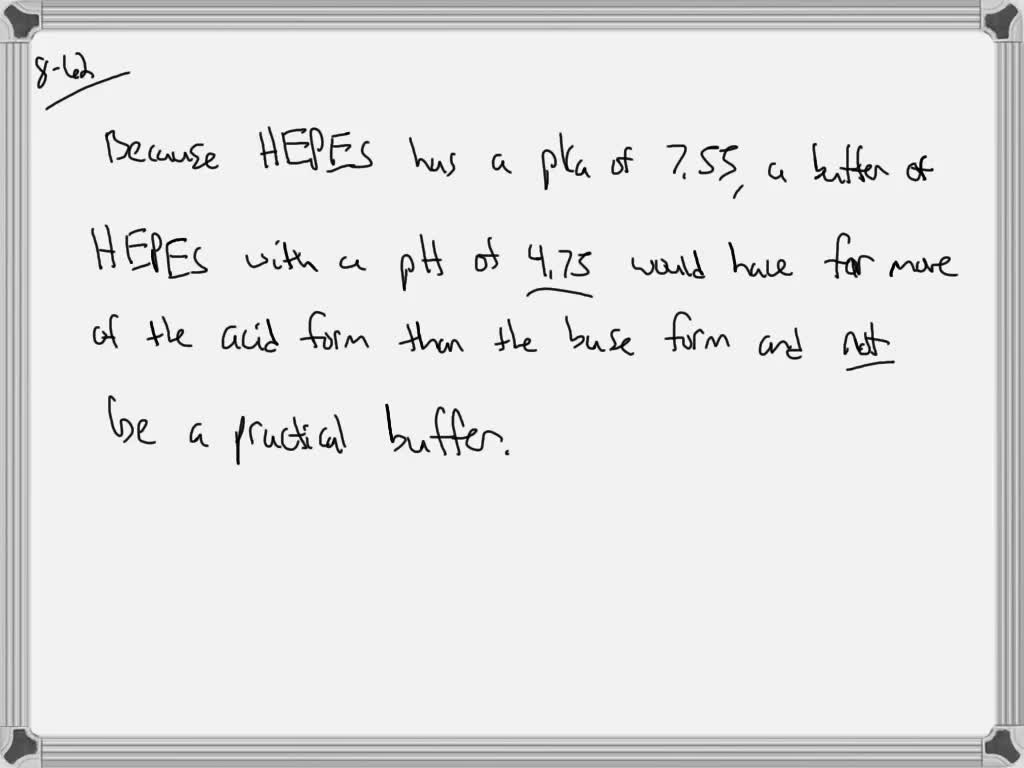 8-62
Because HEPES has a pKa of 7.55, a buffer of
HEPES with a pH of 4.75 would have far more
of the acid form than the base form and not
be a practical buffer.